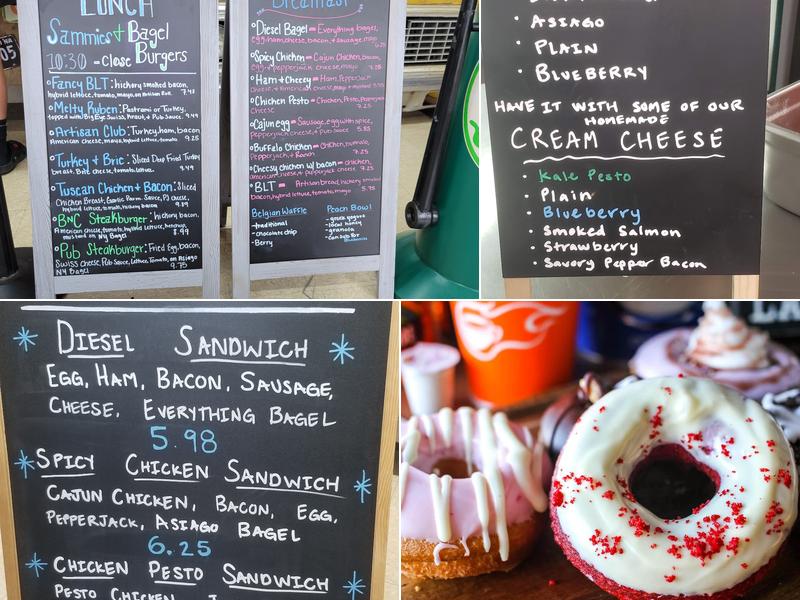 LUNCH
Sammies + Bagel
Burgers
10:30 - close
Fancy BLT: hickory smoked bacon,
hybrid lettuce, tomato, mayo, on Artisan Roll 7.49
Melty Ruben: Pastrami or Turkey,
topped with Big Eye Swiss, Kraut, + Pub Sauce. 9.49
Artisan Club: Turkey, ham, bacon
American cheese, mayo, hybrid lettuce, tomato 9.25
Turkey + Brie: Sliced Deep Fried Turkey
breast, Brie cheese, tomato, lettuce. 9.49
Tuscan Chicken + Bacon: Sliced
Chicken Breast, Garlic Parm Sauce, PJ cheese,
hybrid lettuce, tomato 9.49
BNC Steakburger: hickory bacon,
American cheese, mayo, hybrid lettuce, ketchup,
mustard on NY Bagel 8.99
Pub Steakburger: Fried Egg, bacon,
Swiss cheese, Pub Sauce, Lettuce, Tomato, on Asiago
NY Bagel 9.75
Breakfast
Diesel Bagel = Everything bagel,
egg, ham, cheese, bacon, + sausage, mayo
6.25
Spicy Chicken = Cajun Chicken, bacon,
egg + pepperjack cheese, mayo 7.25
Ham + Cheesy = Ham, Pepperjack
Cheese, + American cheese, mayo + mustard 5.55
Chicken Pesto = Chicken, Pesto, Parmesan
Cheese 7.25
Cajun egg = Sausage, egg with spice,
Pepperjack cheese + pub sauce 5.55
Buffalo Chicken = Chicken, buffalo,
Pepperjack, + Ranch 7.25
Cheesy chicken w/ bacon = chicken,
american cheese, + pepperjack cheese, mayo 7.25
BLT = Artisan bread, hickory smoked
bacon, hybrid lettuce, tomato, mayo 5.75
Belgian Waffle
-traditional
-chocolate chip
-Berry
Peach Bowl
-greek yogurt
-local honey
-granola
ASIAGO
PLAIN
BLUEBERRY
HAVE IT WITH SOME OF OUR
HOMEMADE
CREAM CHEESE
Kale Pesto
Plain
Blueberry
Smoked Salmon
Strawberry
Savory Pepper Bacon
DIESEL SANDWICH
EGG, HAM, BACON, SAUSAGE,
CHEESE, EVERYTHING BAGEL
5.98
SPICY CHICKEN SANDWICH
CAJUN CHICKEN, BACON, EGG,
PEPPERJACK, ASIAGO BAGEL
6.25
CHICKEN PESTO SANDWICH
PESTO CHICKEN,